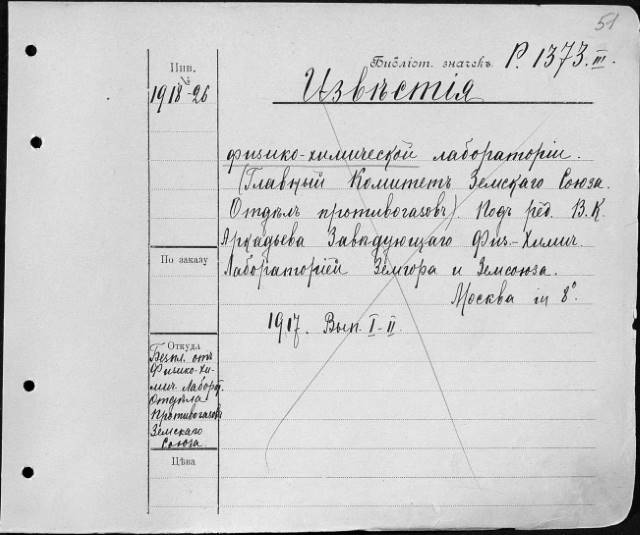 51
Библіот. значекъ P. 1373. III.
Инв.
№
1918-26
Извѣстія
физико-химической лабораторіи.
(Главный Комитетъ Земскаго Союза.
Отдѣлъ противогазовъ). Подъ ред. В.К.
Аркадьева Завѣдующаго Физ.-Химич.
Лабораторіей Земгора и Земсоюза.
Москва in 8°.
1917. Вып. I-II.
По заказу
Откуда
Безпл. отъ
Физико-Хи-
мич. Лаборат.
Отдѣла
Противогазовъ
Земскаго
Союза.
Цѣна